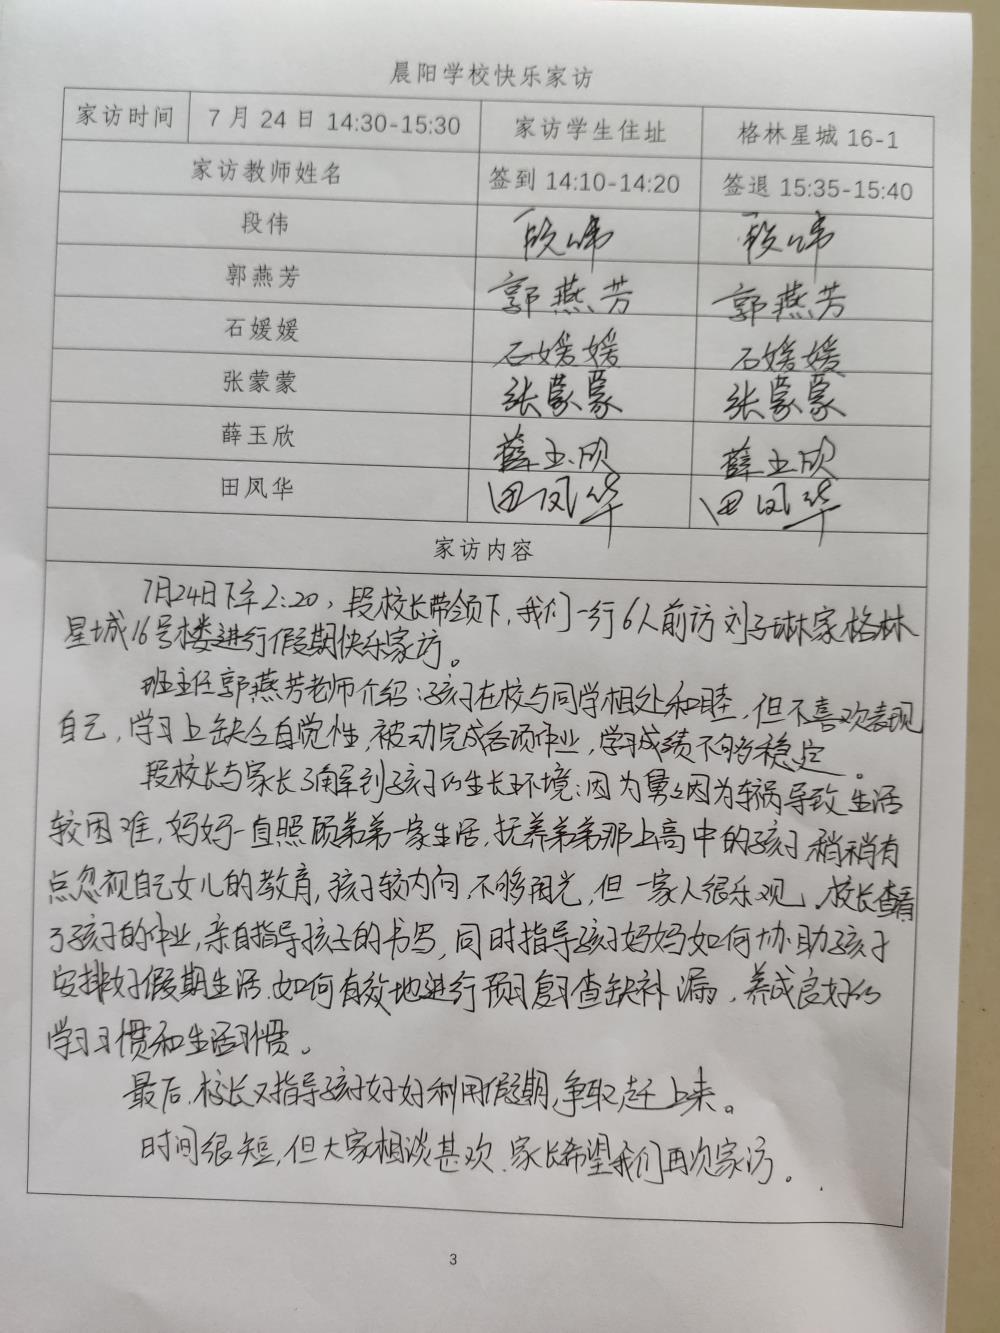 晨阳学校快乐家访
家访时间 7月24日 14:30-15:30 家访学生住址 格林星城 16-1
家访教师姓名 签到 14:10-14:20 签退 15:35-15:40
段伟 段伟 段伟
郭燕芳 郭燕芳 郭燕芳
石媛媛 石媛媛 石媛媛
张蒙蒙 张蒙蒙 张蒙蒙
薛玉欣 薛玉欣 薛玉欣
田凤华 田凤华 田凤华
家访内容
7月24日下午2:20,段校长带领下,我们一行6人前访刘子琳家格林
星城16号楼进行假期快乐家访。
班主任郭燕芳老师介绍:孩子在校与同学相处和睦,但不喜欢表现
自己,学习上缺乏自觉性,被动完成各项作业,学习成绩不够稳定。
段校长与家长了解到孩子的生长环境:因为舅舅因为车祸导致生活
较困难,妈妈一直照顾弟弟一家生活,抚养弟弟那上高中的孩子,稍稍有
点忽视自己女儿的教育,孩子较内向,不够阳光,但一家人很乐观。校长查看
了孩子的作业,亲自指导孩子的书写,同时指导孩子妈妈如何协助孩子
安排好假期生活,如何有效地进行预习复习查缺补漏,养成良好的
学习习惯和生活习惯。
最后,校长又指导孩子好好利用假期,争取赶上来。
时间很短,但大家相谈甚欢,家长希望我们再次家访。
3